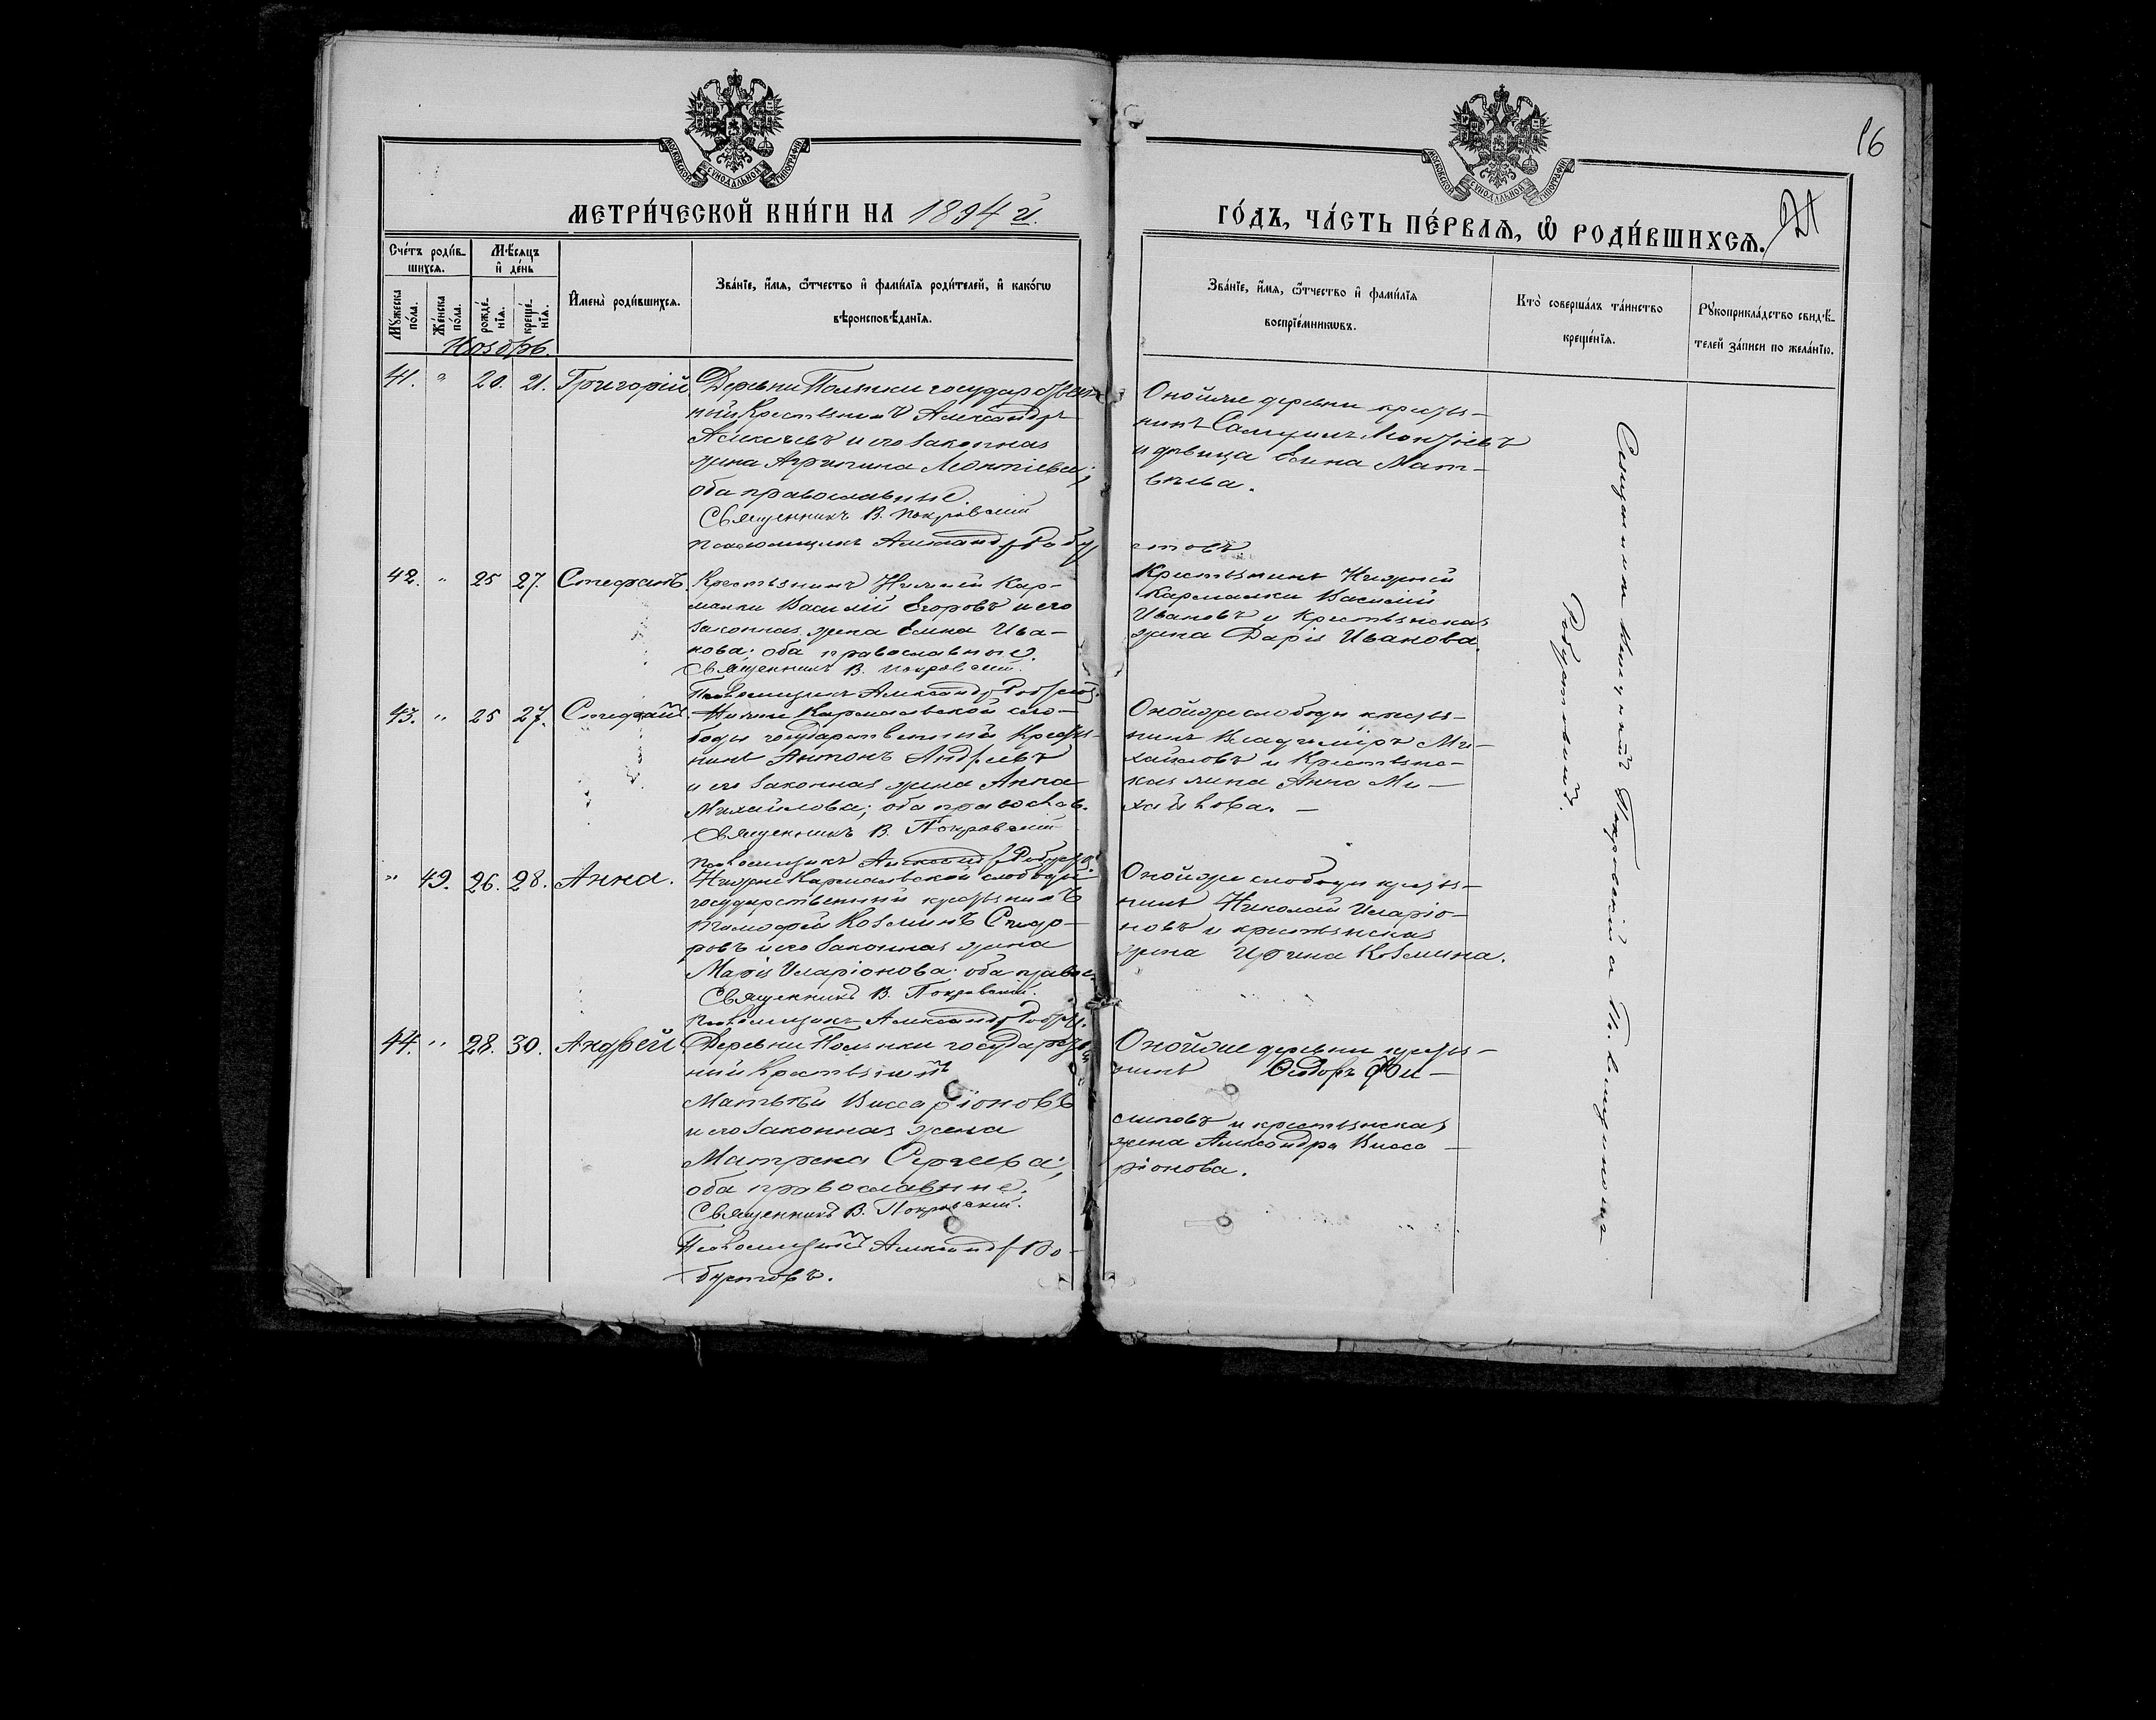 16
21
МОСКОВСКОЙ СѴНОДАЛЬНОЙ ТИПОГРАФІИ
МОСКОВСКОЙ СѴНОДАЛЬНОЙ ТИПОГРАФІИ
МЕТРИ́ЧЕСКОЙ КНИ́ГИ НА 1894 й.
ГО́ДЪ, ЧА́СТЬ ПЕ́РВАЯ, Ѽ РОДИ́ВШИХСЯ.
Сче́тъ роди́в-
шихся.
Мѣ́сяцъ
и҆ де́нь
Мꙋ́жеска по́ла.
Же́нска по́ла.
рожде́-
нїѧ.
креще́-
нїѧ.
И҆мена̀ роди́вшихся.
Зва́нїе, и҆́мя, ѻ҆́тчество и҆ фами́лїѧ роди́телей, и҆ како́гѡ
вѣроисповѣ́данїѧ.
Зва́нїе, и҆́мя, ѻ҆́тчество и҆ фами́лїѧ
воспрїе́мникѡвъ.
Кто̀ соверша́лъ та́инство
креще́нїѧ.
Рꙋкоприкла́дство свидѣ́-
телей за́писи по жела́нїю.
Ноябрь.
41. " 20. 21. Григорій.
Деревни Полянки государствен-
ный Крестьянинъ Александръ
Алексѣевъ и его законная
жена Агрипина Леонтіева;
оба православные.
Священникъ В. Покровскій
Псаломщикъ Александръ Робу
стовъ
Онойже деревни кресть-
нинъ Самуилъ Леонтіевъ
и дѣвица Елена Мат-
вѣева.
42. " 25 27. Стефанъ.
Крестьянинъ Нижней Кар-
малки Василій Егоровъ и его
законная жена Елена Ива-
нова; оба православные.
Священникъ В. Покровскій.
Псаломщикъ Александръ Робустов.
Крестьянинъ Нижней
Кармалки Василій
Ивановъ и крестьянская
жена Дарія Иванова.
43. " 25 27. Стефанъ.
Нижне Кармальской сло-
боды государственный Кресть-
нинъ Антонъ Андреевъ
и его законная жена Анна
Михайлова; оба православ.
Священникъ В. Покровскій
Псаломщикъ Александръ Робустов.
Онойже слободы кресть-
нинъ Владиміръ Ми-
хайловъ и Крестьянс-
кая жена Анна Ми-
хайлова.
" 49. 26. 28. Анна.
Нижне Кармальской слободы
государственный крестьянинъ
Тимофей Козминъ Сидо-
ровъ и его законная жена
Марія Иларіонова; оба правос.
Священникъ В. Покровскій.
Псаломщикъ Александръ Робуст.
Онойже слободы кресть-
нинъ Николай Иларіо-
новъ и крестьянская
жена Ирина Козмина.
44. " 28. 30. Андрей
Деревни Полянки государствен
ный Крестьянинъ
Матвѣй Виссаріоновъ
и его законная жена
Матрена Сергеева;
оба православные.
Священникъ В. Покровскій.
Псаломщикъ Александръ Ро-
бустовъ.
Онойже деревни кресть-
нинъ Ѳедоръ Фи-
липовъ и крестьянская
жена Александра Висса-
ріонова.
Священникъ Покровскій с П. ломщикомъ
Робустовымъ.